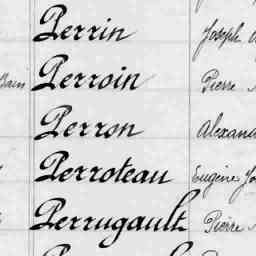 Perrin Joseph
Perroin Pierre
Perron
Perroteau Eugène
Perrugault Pierre